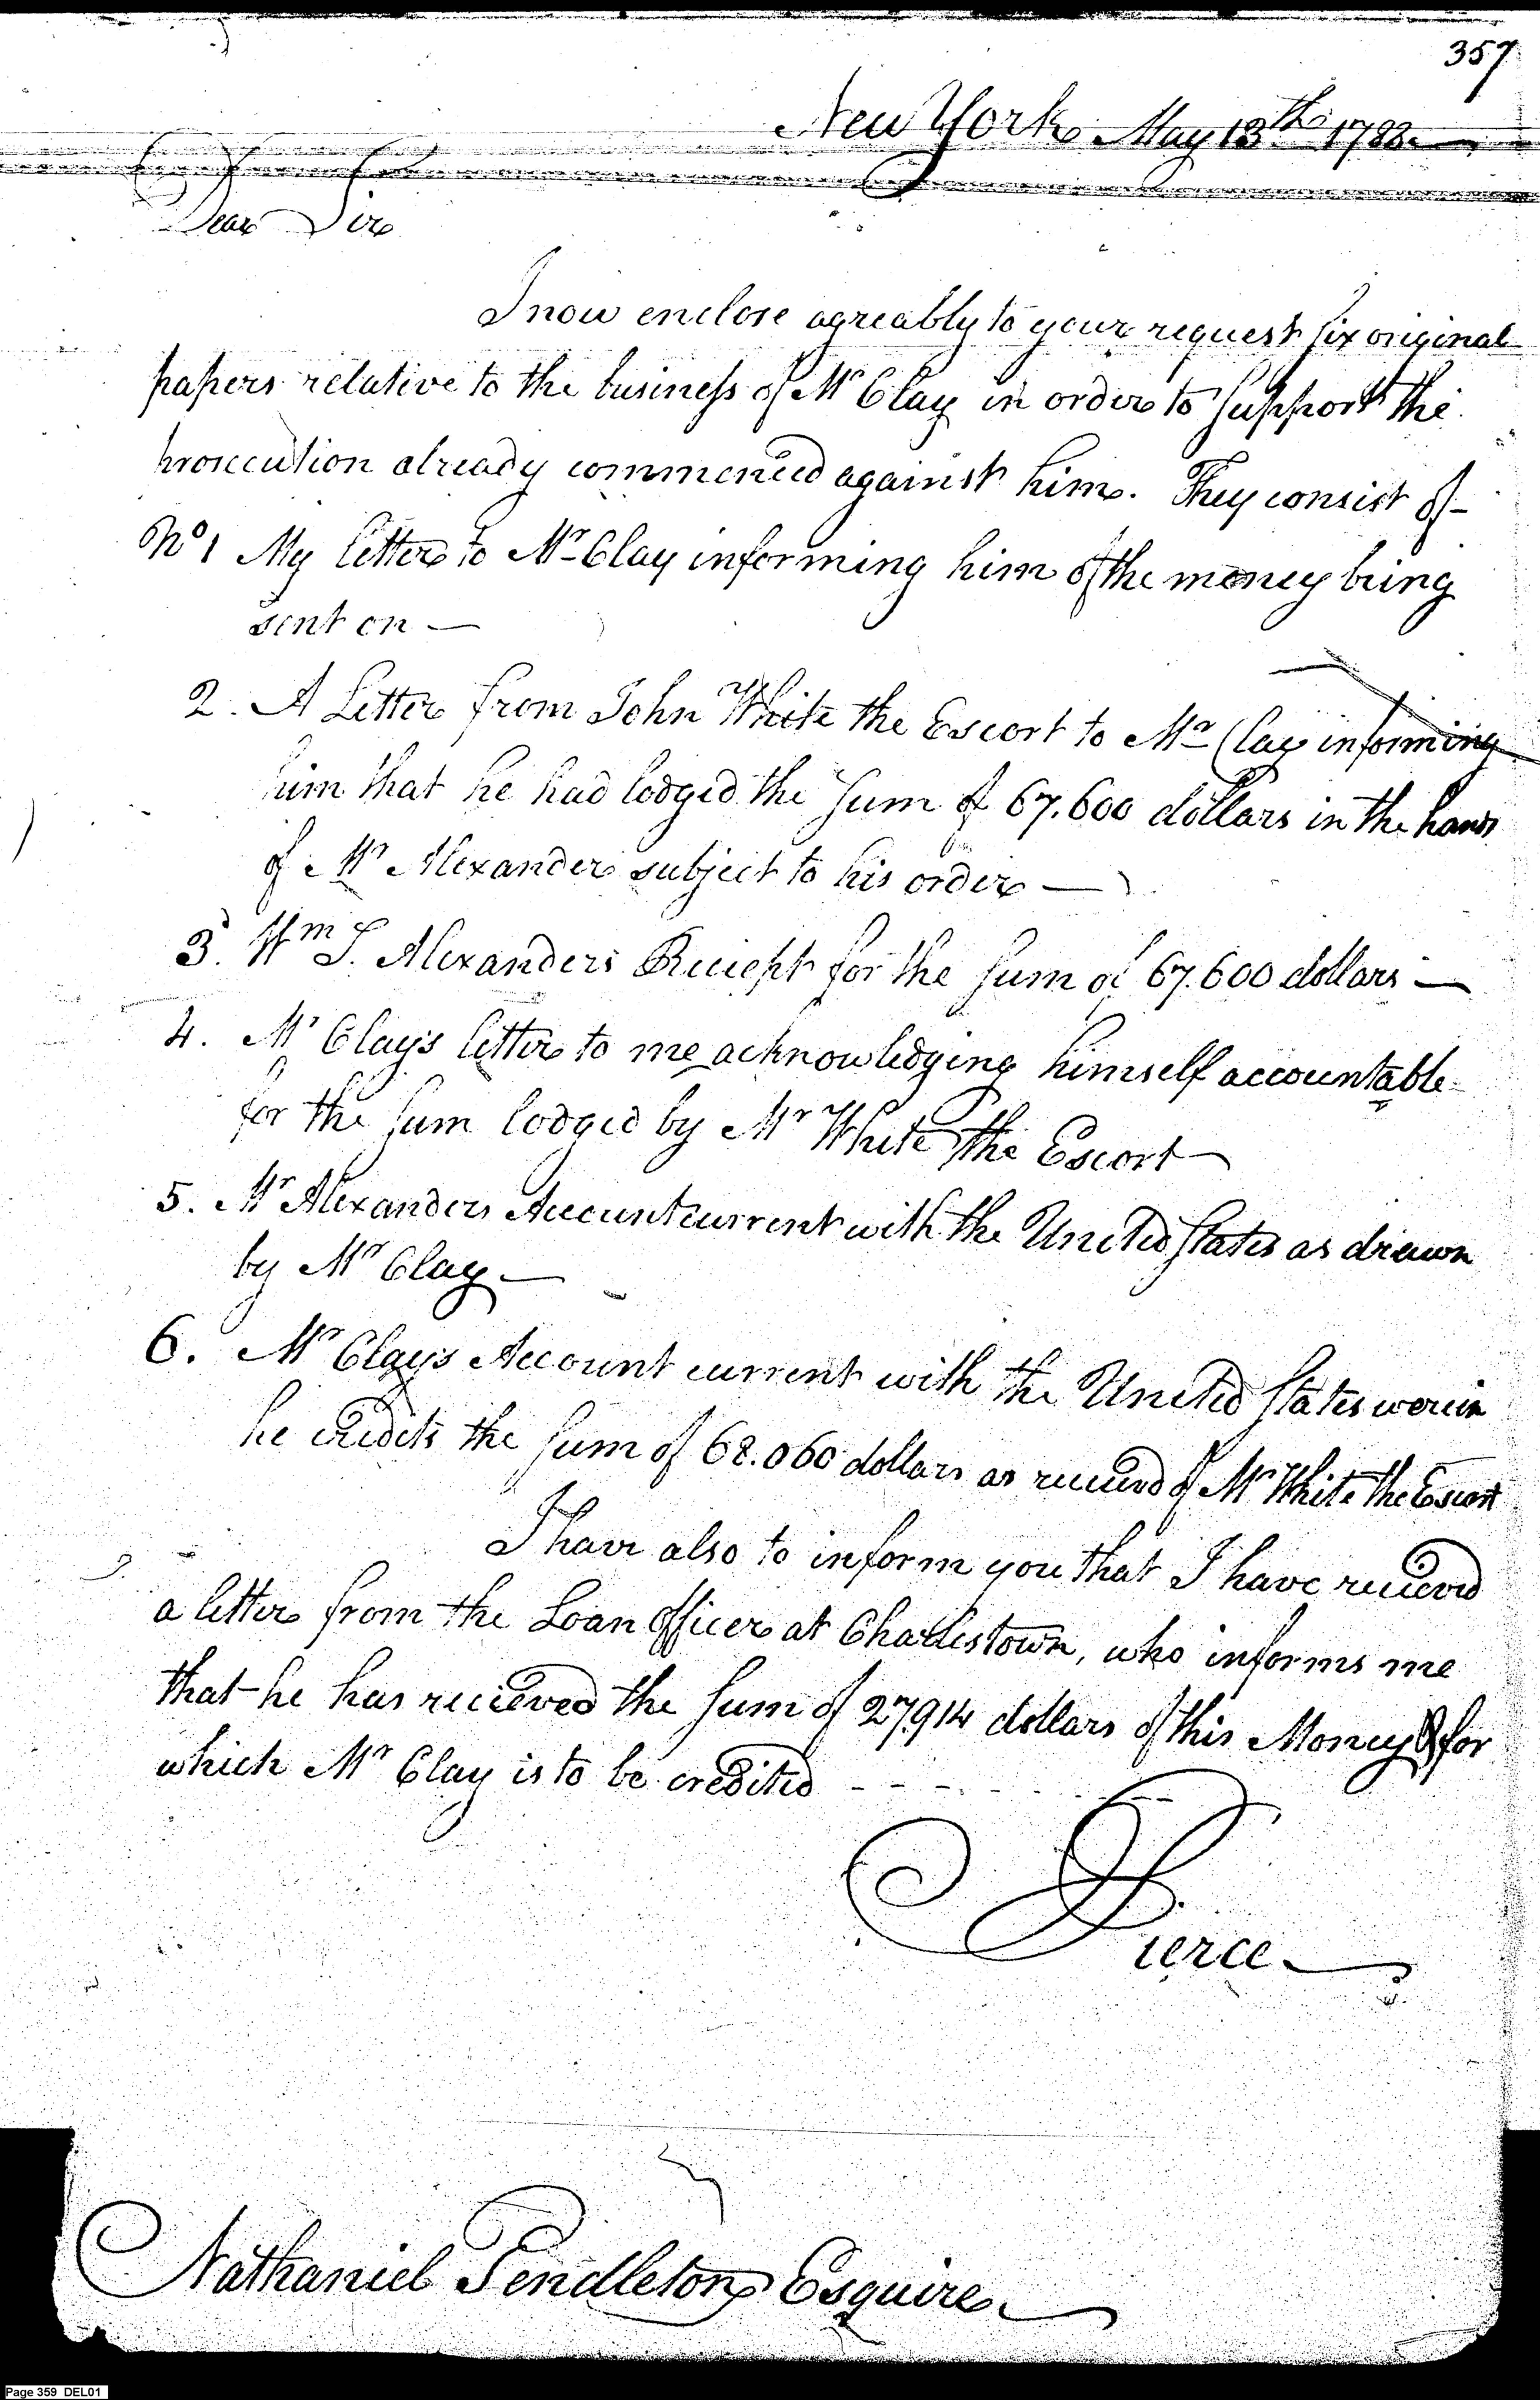 357
New York May 13th 1788
Dear Sir
I now enclose agreably to your request six original
papers relative to the business of Mr Clay in order to support the
prosecution already commenced against him. They consist of
No 1 My letter to Mr Clay informing him of the money being
sent on —
2. A Letter from John White the Escort to Mr Clay informing
him that he had lodged the sum of 67.600 dollars in the hands
of Mr Alexander subject to his order —
3. Wm S. Alexanders Reciept for the sum of 67.600 dollars —
4. Mr Clay's letter to me acknowledging himself accountable
for the sum lodged by Mr White the Escort —
5. Mr Alexanders Account current with the United States as drawn
by Mr Clay —
6. Mr Clays Account current with the United States werein
he credits the sum of 68.060 dollars as recieved of Mr White the Escort
I have also to inform you that I have recieved
a letter from the Loan Officer at Charlestown, who informs me
that he has recieved the sum of 27914 dollars of this Money & for
which Mr Clay is to be credited - - - -
Pierce
Nathaniel Pendleton Esquire
Page 359 DEL01